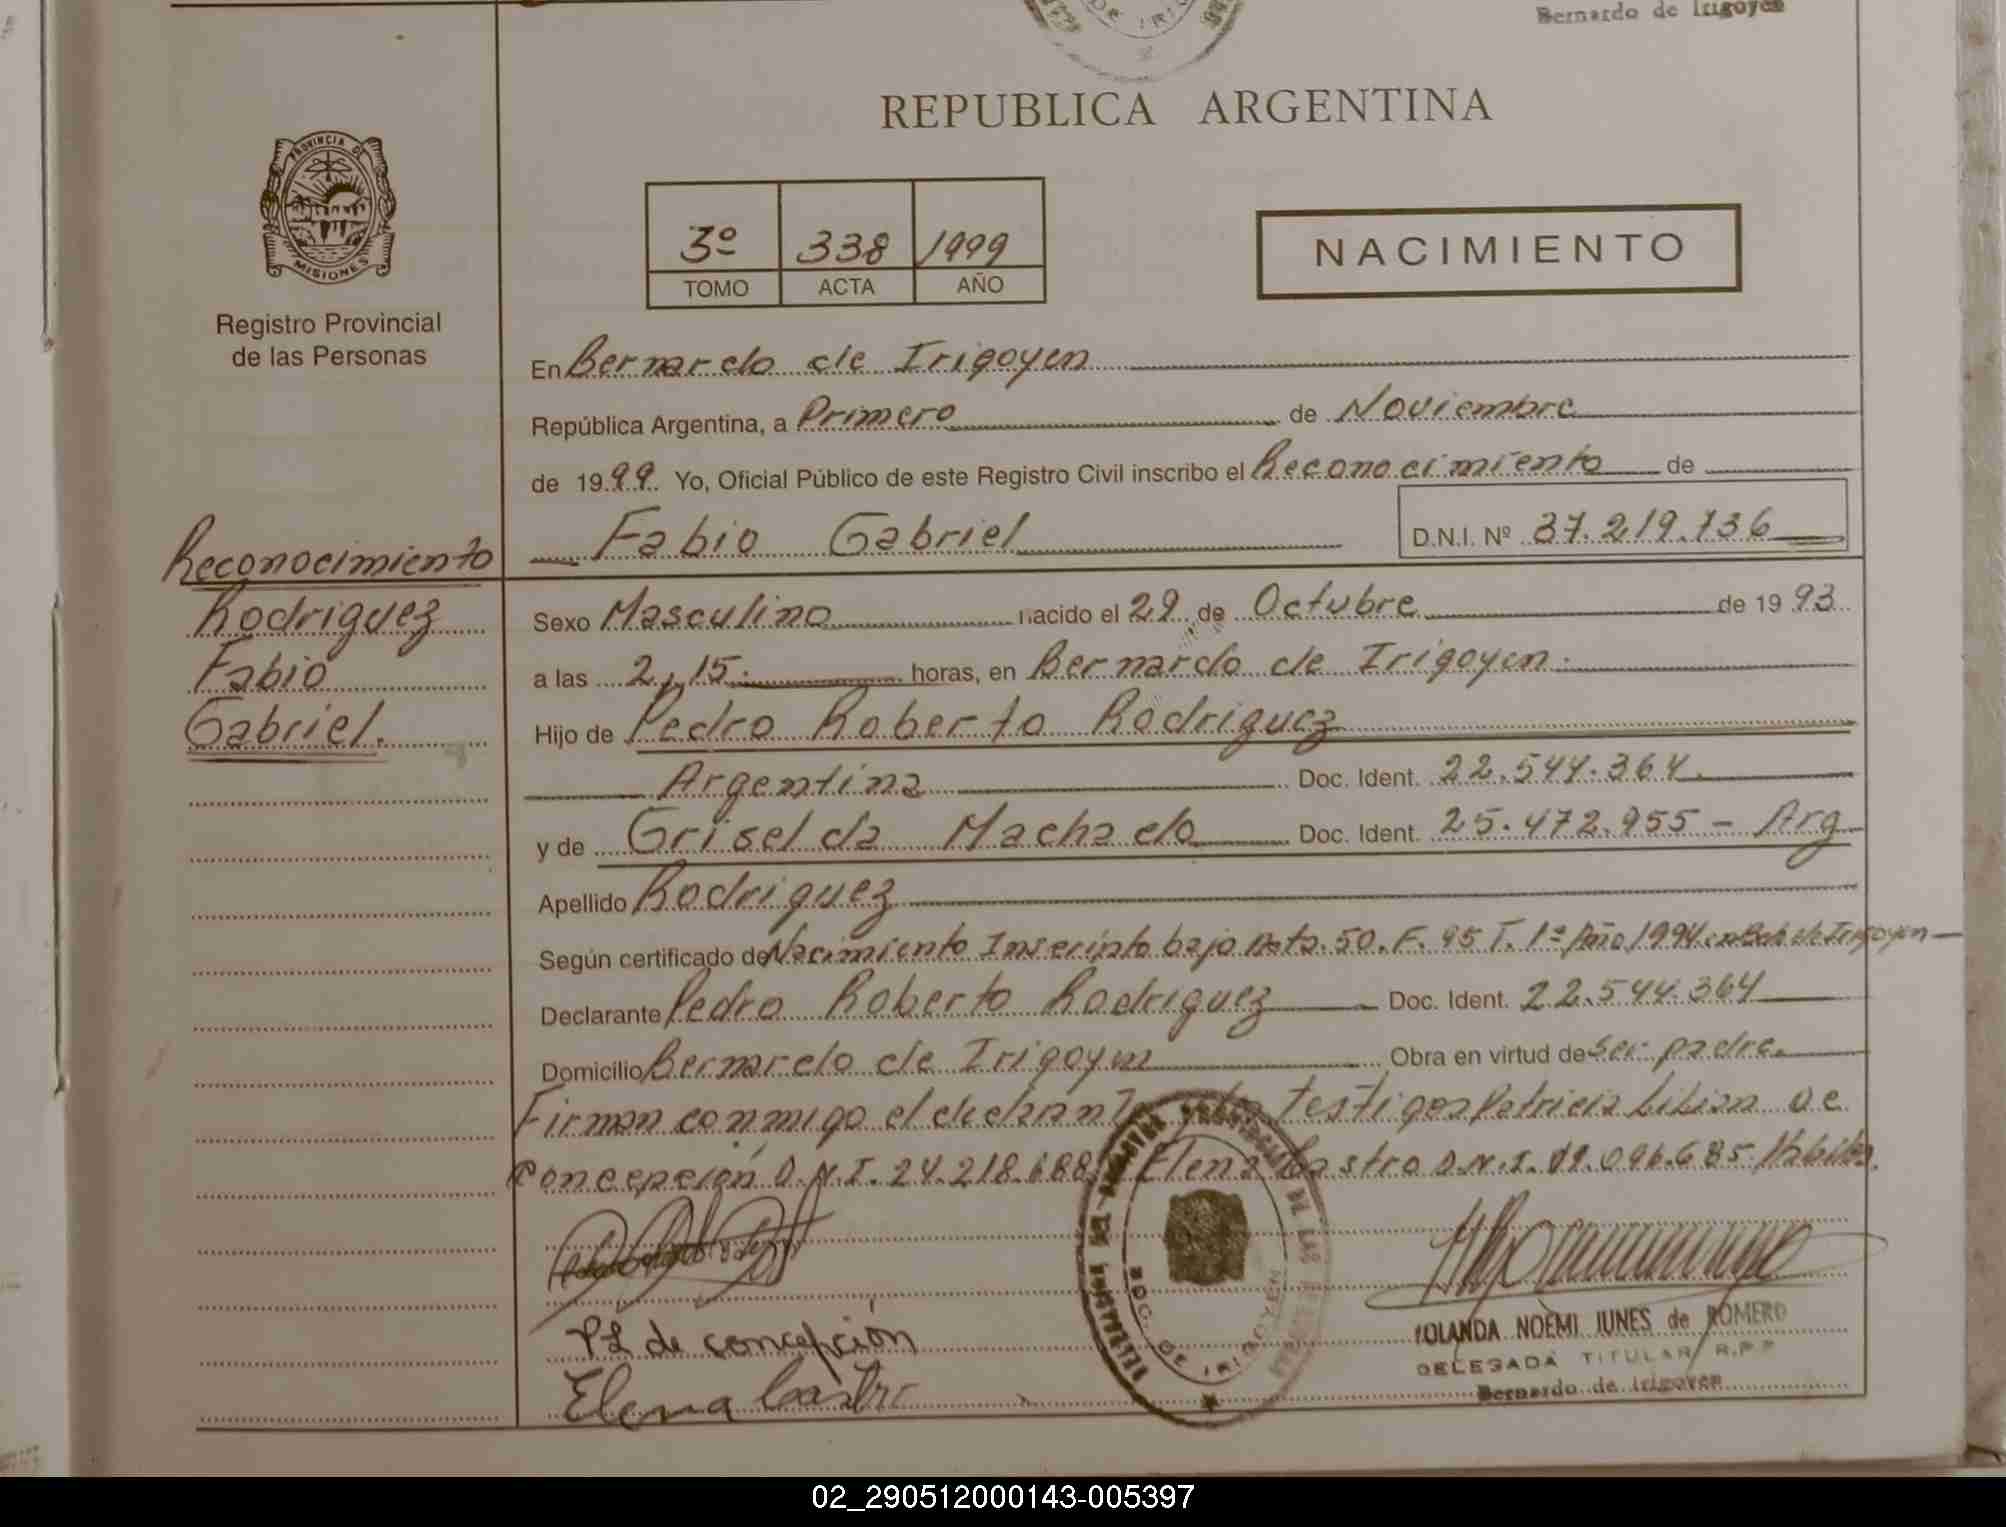 DE IRIG
Bernardo de Irigoyen
REPUBLICA ARGENTINA
PROVINCIA DE
MISIONES
Registro Provincial
de las Personas
3º 338 1999
TOMO ACTA AÑO
NACIMIENTO
En Bernardo de Irigoyen
República Argentina, a Primero de Noviembre
de 1999. Yo, Oficial Público de este Registro Civil inscribo el Reconocimiento de
Fabio Gabriel D.N.I. Nº 37.219.736
Reconocimiento
Rodriguez
Fabio
Gabriel.
Sexo Masculino nacido el 29 de Octubre de 1993
a las 2,15. horas, en Bernardo de Irigoyen.
Hijo de Pedro Roberto Rodriguez
Argentina Doc. Ident. 22.544.364.
y de Griselda Machado Doc. Ident. 25.472.955 - Arg
Apellido Rodriguez
Según certificado de Nacimiento Inscripto bajo Acta. 50. F. 95 T. 1º Año 1994 en Bdo de Irigoyen
Declarante Pedro Roberto Rodriguez Doc. Ident. 22.544.364
Domicilio Bernardo de Irigoyen Obra en virtud de Ser padre.
Firman conmigo el testigos Patricia Lilian De
Concepción D.N.I. 24.218.688 Elena Castro D.N.I.
PL de concepción
Elena Castro
BDO. DE IRIGOYEN
YOLANDA NOEMI IUNES de ROMERO
DELEGADA TITULAR R.P.P
Bernardo de Irigoyen
02_290512000143-005397